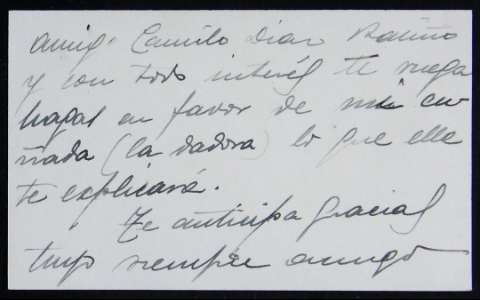 amigo Camilo Díaz Baliño
y con todo interés te ruega
hagas en favor de mi cu-
ñada (la dadora) lo que ella
te explicará.
Te anticipa gracias
tuyo siempre amigo